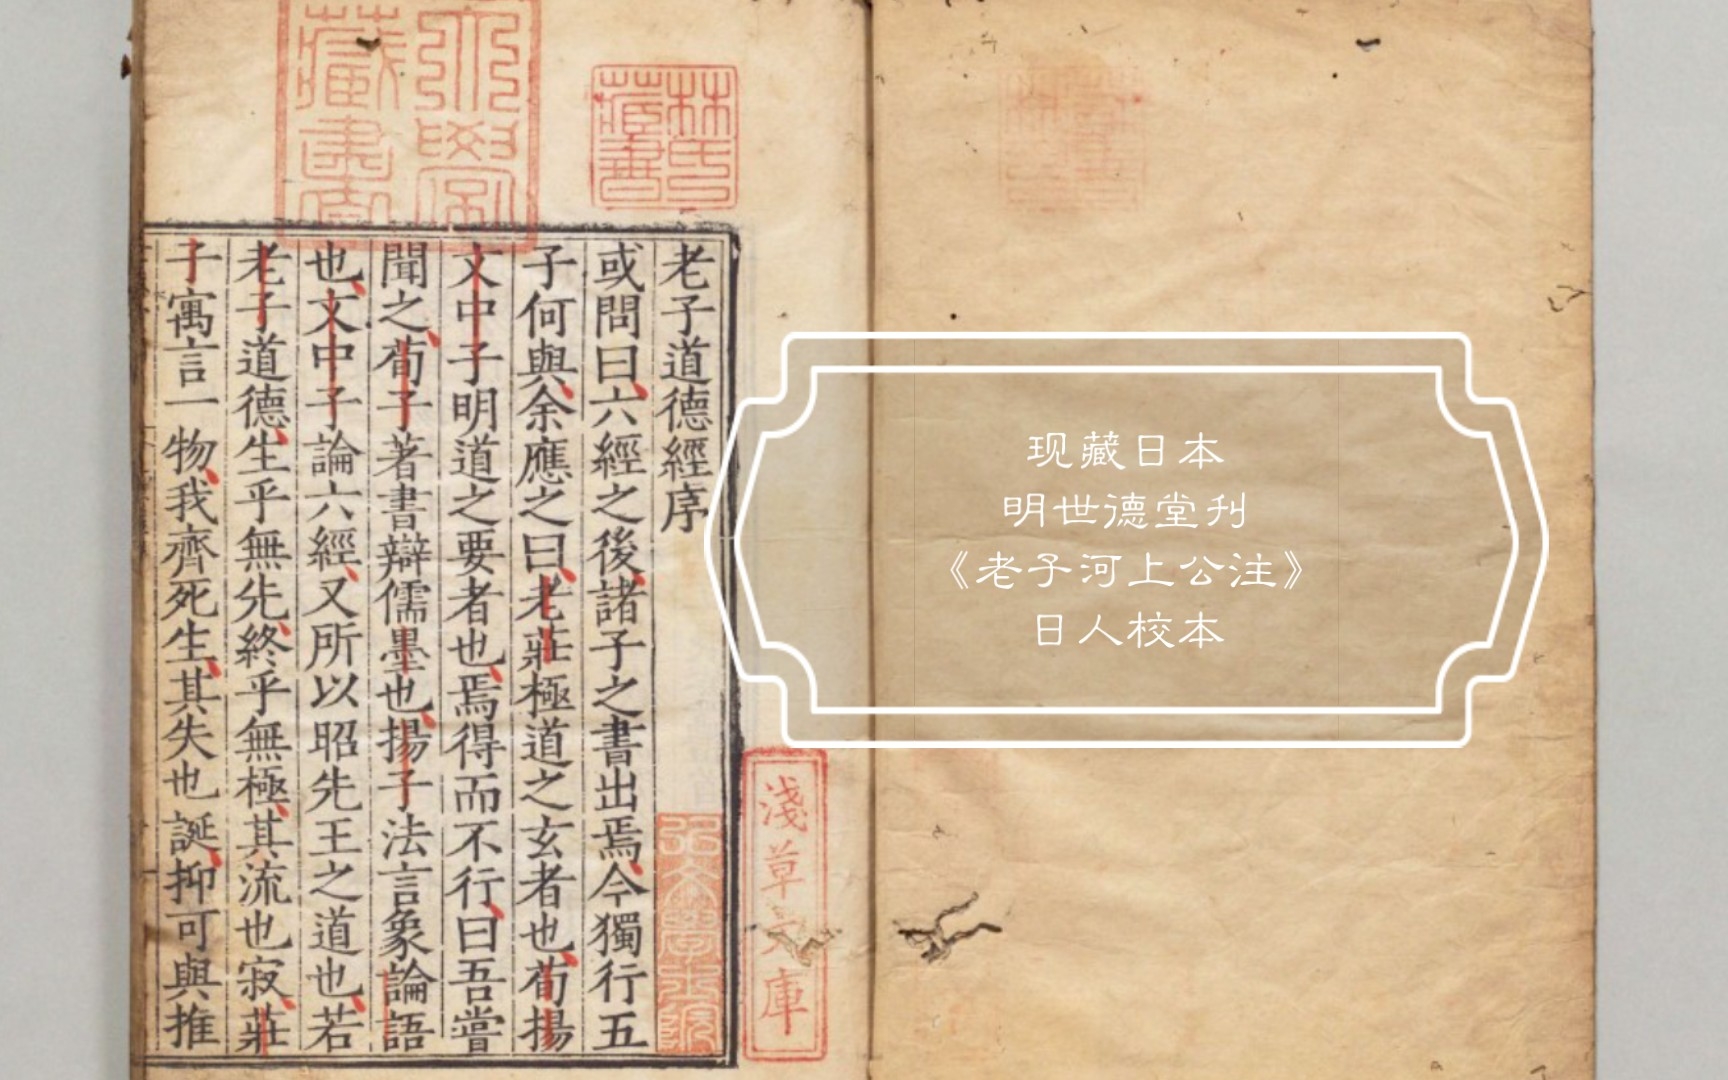 现藏日本
明世德堂刊
《老子河上公注》
日人校本
林氏藏書
淺草文庫
弘文學士院
老子道德經序
或問曰六經之後諸子之書出焉今獨行五
子何與余應之曰老莊極道之玄者也荀揚
文中子明道之要者也焉得而不行曰吾嘗
聞之荀子著書辯儒墨也揚子法言象論語
也文中子論六經又所以昭先王之道也若
老子道德生乎無先終乎無極其流也寂莊
子寓言一物我齊死生其失也誕抑可與推